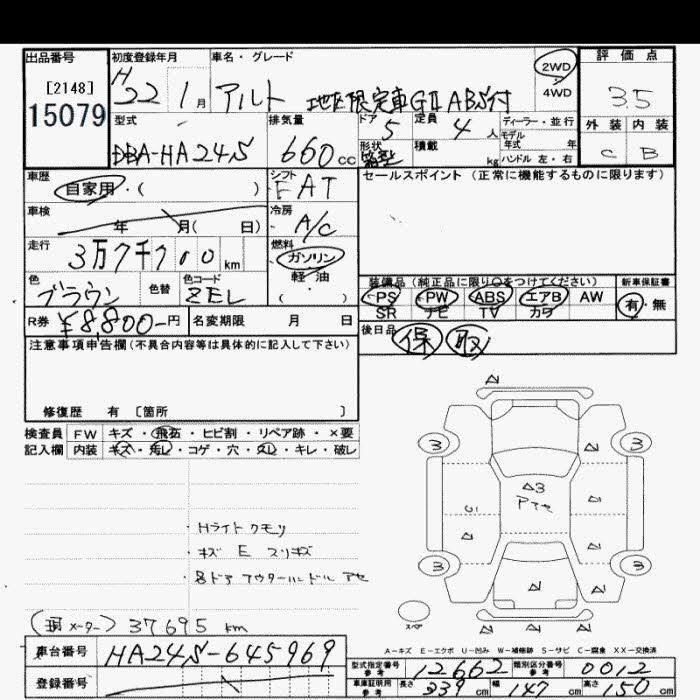 出品番号
[2148]
15079
初度登録年月
H22 1月
車名・グレード
アルト 地区限定車GⅡ ABS付
2WD
4WD
評価点
3.5
外装 内装
C B
型式
DBA-HA24S
排気量
660cc
ドア
5
形状
箱型
定員
4人
積載
kg
ディーラー・並行
モデル
年式 年
ハンドル 左・右
車歴
自家用・( )
シフト
FAT
セールスポイント(正常に機能するものに限ります)
車検
年 月( 日)
冷房
A/C
走行
3万7千700km
燃料
ガソリン
・
軽・油
( )
色
ブラウン
色替
色コード
ZEL
装備品(純正品に限り○をつけてください)
PS PW ABS エアB AW
SR ナビ TV カワ
新車保証書
有・無
R券 ¥8,800-円
名変期限 月 日
後日品 保 取
注意事項申告欄(不具合内容等は具体的に記入して下さい)
修復歴 有 〔箇所 〕
検査員
記入欄
FW キズ・飛石・ヒビ割・リペア跡・×要
内装 キズ・汚レ・コゲ・穴・スレ・キレ・破レ
・Hライトクモリ
・キズ E スリキズ
各ドアアウターハンドルアセ
(現メーター) 37695 km
A
3
3
A
A3
アセ
A
A
A
A
3
3
A
A
A
A
A
スペア
A-キズ E-エクボ U-凹み W-補修跡 S-サビ C-腐食 XX-交換済
車台番号 HA24S-645969
登録番号
型式指定番号
参考
12662
類別区分番号
参考
0012
車庫証明用
参考
長さ 339cm 幅 147cm 高さ 150cm